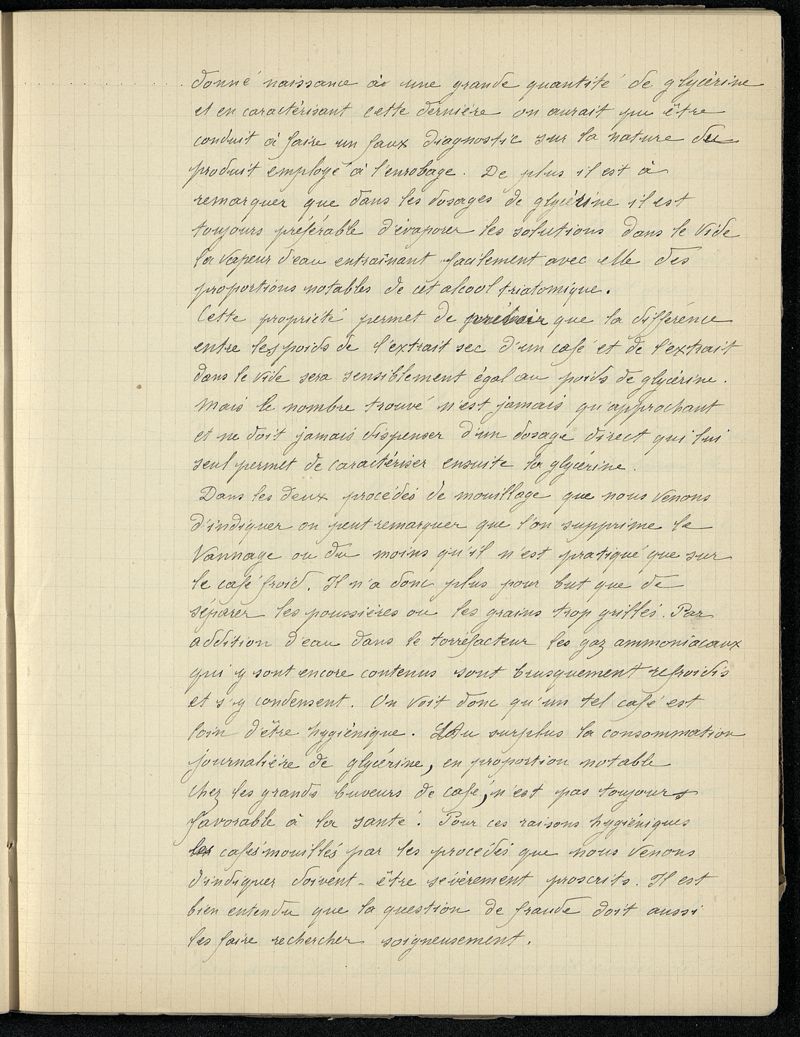 donné naissance à une grande quantité de glycérine
et en caractérisant cette dernière on aurait pu être
conduit à faire un faux diagnostic sur la nature du
produit employé à l'enrobage. De plus il est à
remarquer que dans les dosages de glycérine il est
toujours préférable d'évaporer les solutions dans le vide
la vapeur d'eau entraînant facilement avec elle des
proportions notables de cet alcool triatomique.
Cette propriété permet de prévoir que la différence
entre les poids de l'extrait sec d'un café et de l'extrait
dans le vide sera sensiblement égal au poids de glycérine.
Mais le nombre trouvé n'est jamais qu'approchant
et ne doit jamais dispenser d'un dosage direct qui lui
seul permet de caractériser ensuite la glycérine.
Dans les deux procédés de mouillage que nous venons
d'indiquer on peut remarquer que l'on supprime le
vannage ou du moins qu'il n'est pratiqué que sur
le café froid. Il n'a donc plus pour but que de
séparer les poussières ou les grains trop grillés. Par
addition d'eau dans le torréfacteur les gaz ammoniacaux
qui y sont encore contenus sont brusquement refroidis
et s'y condensent. On voit donc qu'un tel café est
loin d'être hygiénique. Au surplus la consommation
journalière de glycérine, en proportion notable
chez les grands buveurs de café, n'est pas toujours
favorable à la santé. Pour ces raisons hygiéniques
les cafés mouillés par les procédés que nous venons
d'indiquer doivent-être sévèrement proscrits. Il est
bien entendu que la question de fraude doit aussi
les faire rechercher soigneusement.